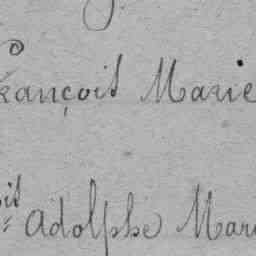 François Marie
Adolphe Mari